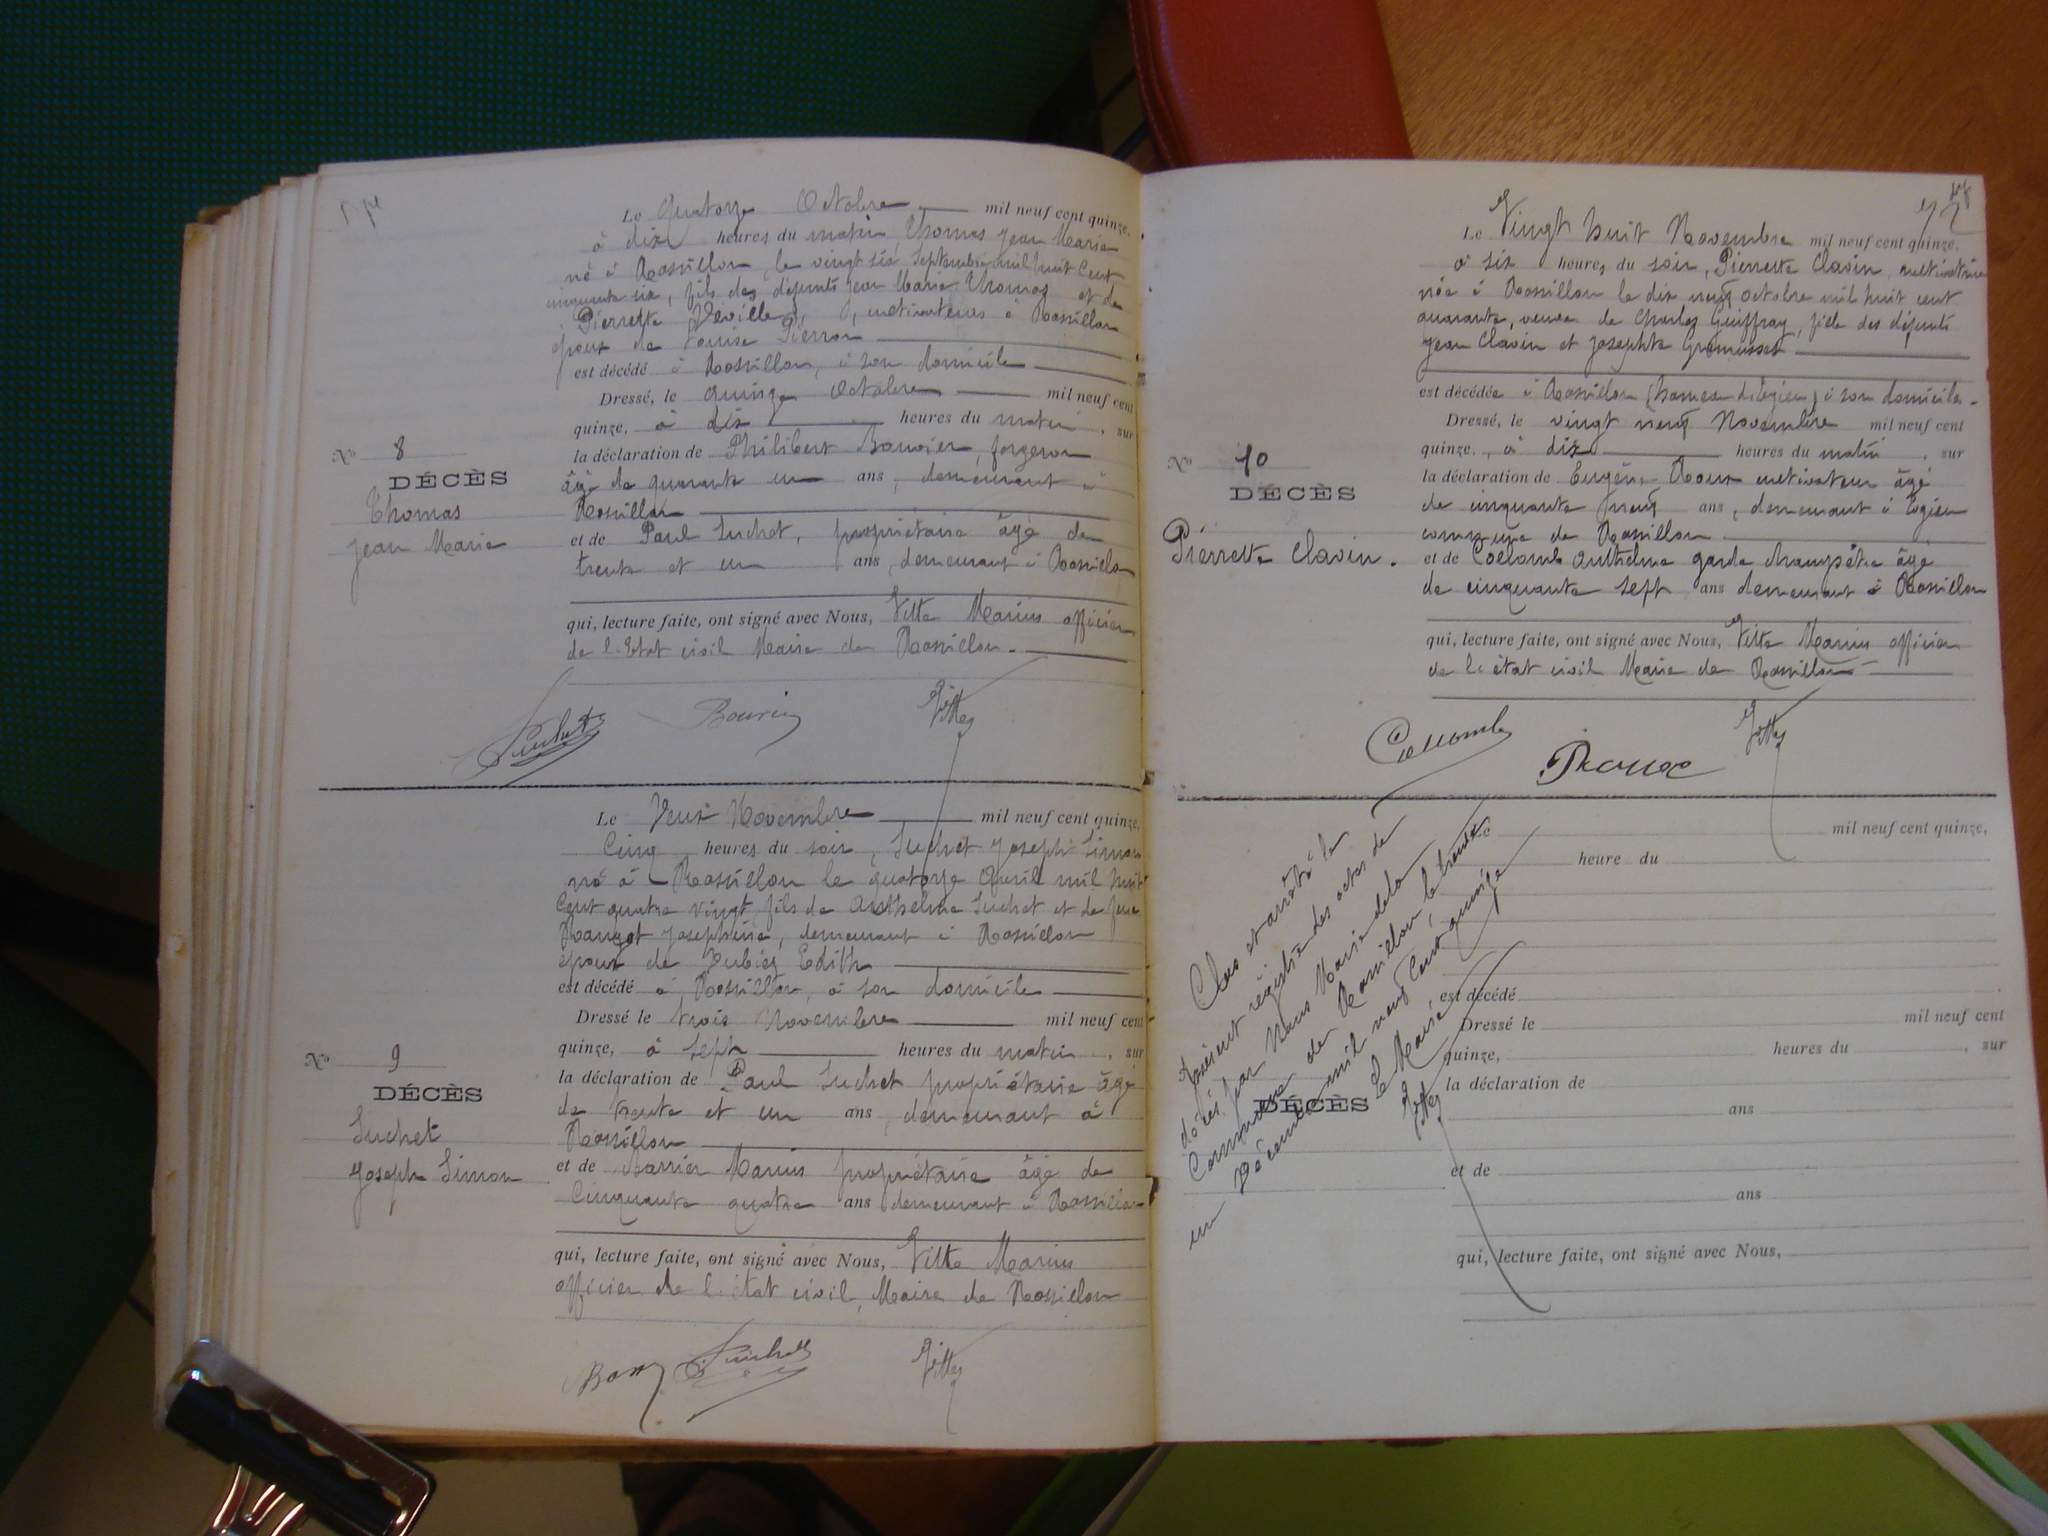 Le Quatorze Octobre mil neuf cent quinze,
à dix heures du matin, Thomas Jean Marie
né à Rossillon, le vingt six Septembre mil huit Cent
cinquante six, fils des défunts Jean Marie Thomas et de
Pierrette, cultivateurs à Rossillon
époux de Louise Pierron
est décédé à Rossillon, à son domicile
Dressé, le quinze Octobre mil neuf cent
quinze, à dix heures du matin, sur
la déclaration de Philibert Bouvier, forgeron
âgé de quarante un ans, demeurant à
Rossillon
et de Paul Suchet, propriétaire âgé de
trente et un ans, demeurant à Rossillon
qui, lecture faite, ont signé avec Nous, Vitte Marius officier
de l'Etat civil Maire de Rossillon.
No 8
DÉCÈS
Thomas
Jean Marie
Suchet Vitte
Le Deux Novembre mil neuf cent quinze,
Cinq heures du soir, Suchet Joseph Simon
né à Rossillon le quatorze Avril mil huit
Cent quatre vingt, fils de Anthelme Suchet et de feue
Josephine, demeurant à Rossillon
époux de Edith
est décédé à Rossillon, à son domicile
Dressé le trois Novembre mil neuf cent
quinze, à sept heures du matin, sur
la déclaration de Paul Suchet propriétaire âgé
de trente et un ans, demeurant à
Rossillon
et de Marius propriétaire âgé de
Cinquante quatre ans demeurant à Rossillon
qui, lecture faite, ont signé avec Nous, Vitte Marius
officier de l'état civil, Maire de Rossillon
No 9
DÉCÈS
Suchet
Joseph Simon
Suchet Vitte
Le Vingt huit Novembre mil neuf cent quinze,
à six heures du soir, Pierrette Clavin, cultivatrice
née à Rossillon le dix neuf Octobre mil huit cent
quarante, veuve de Charles Guiffray, fille des défunts
Jean Clavin et Josephte
est décédée à Rossillon (hameau d'Egieu) à son domicile.
Dressé, le vingt neuf Novembre mil neuf cent
quinze, à dix heures du matin, sur
la déclaration de Eugène Roux cultivateur âgé
de cinquante neuf ans, demeurant à Egieu
commune de Rossillon
et de Collomb Anthelme garde champêtre âgé
de cinquante sept ans demeurant à Rossillon
qui, lecture faite, ont signé avec Nous, Vitte Marius officier
de l'état civil Maire de Rossillon
No 10
DÉCÈS
Pierrette Clavin.
Collomb Roux Vitte
Clos et arrêté le
présent registre des actes de
décès par Nous Maire de la
Commune de Rossillon, le trente
un Décembre mil neuf Cent quinze
Le Maire,
Vitte
Le mil neuf cent quinze,
heure du
est décédé
Dressé le mil neuf cent
quinze, heures du , sur
la déclaration de
ans
et de
ans
qui, lecture faite, ont signé avec Nous,
DÉCÈS